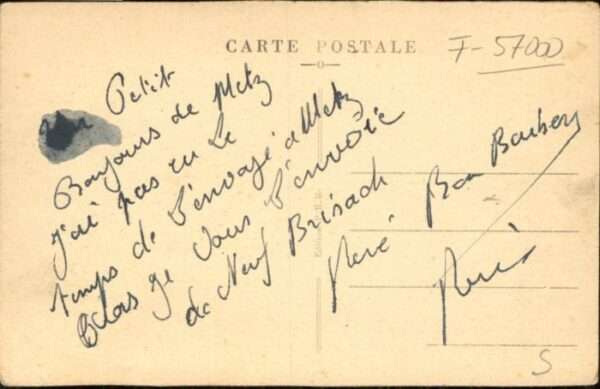 CARTE POSTALE
F-57000
Un Petit
Bonjours de Metz
j'ai pas eu le
temps de l'envoyé a Metz
alors je vous l'envoie
de Neuf Brisach
René
Bon
René
S